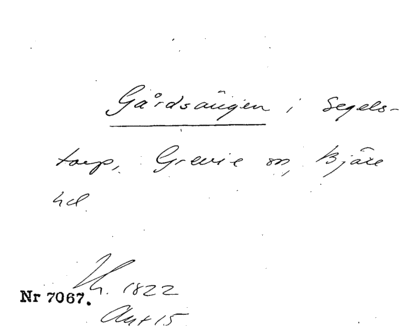 Gårdsängen i Segels-
torp, Grevie sn, Bjäre
hd
Nr 7067. 1822
Akt 15